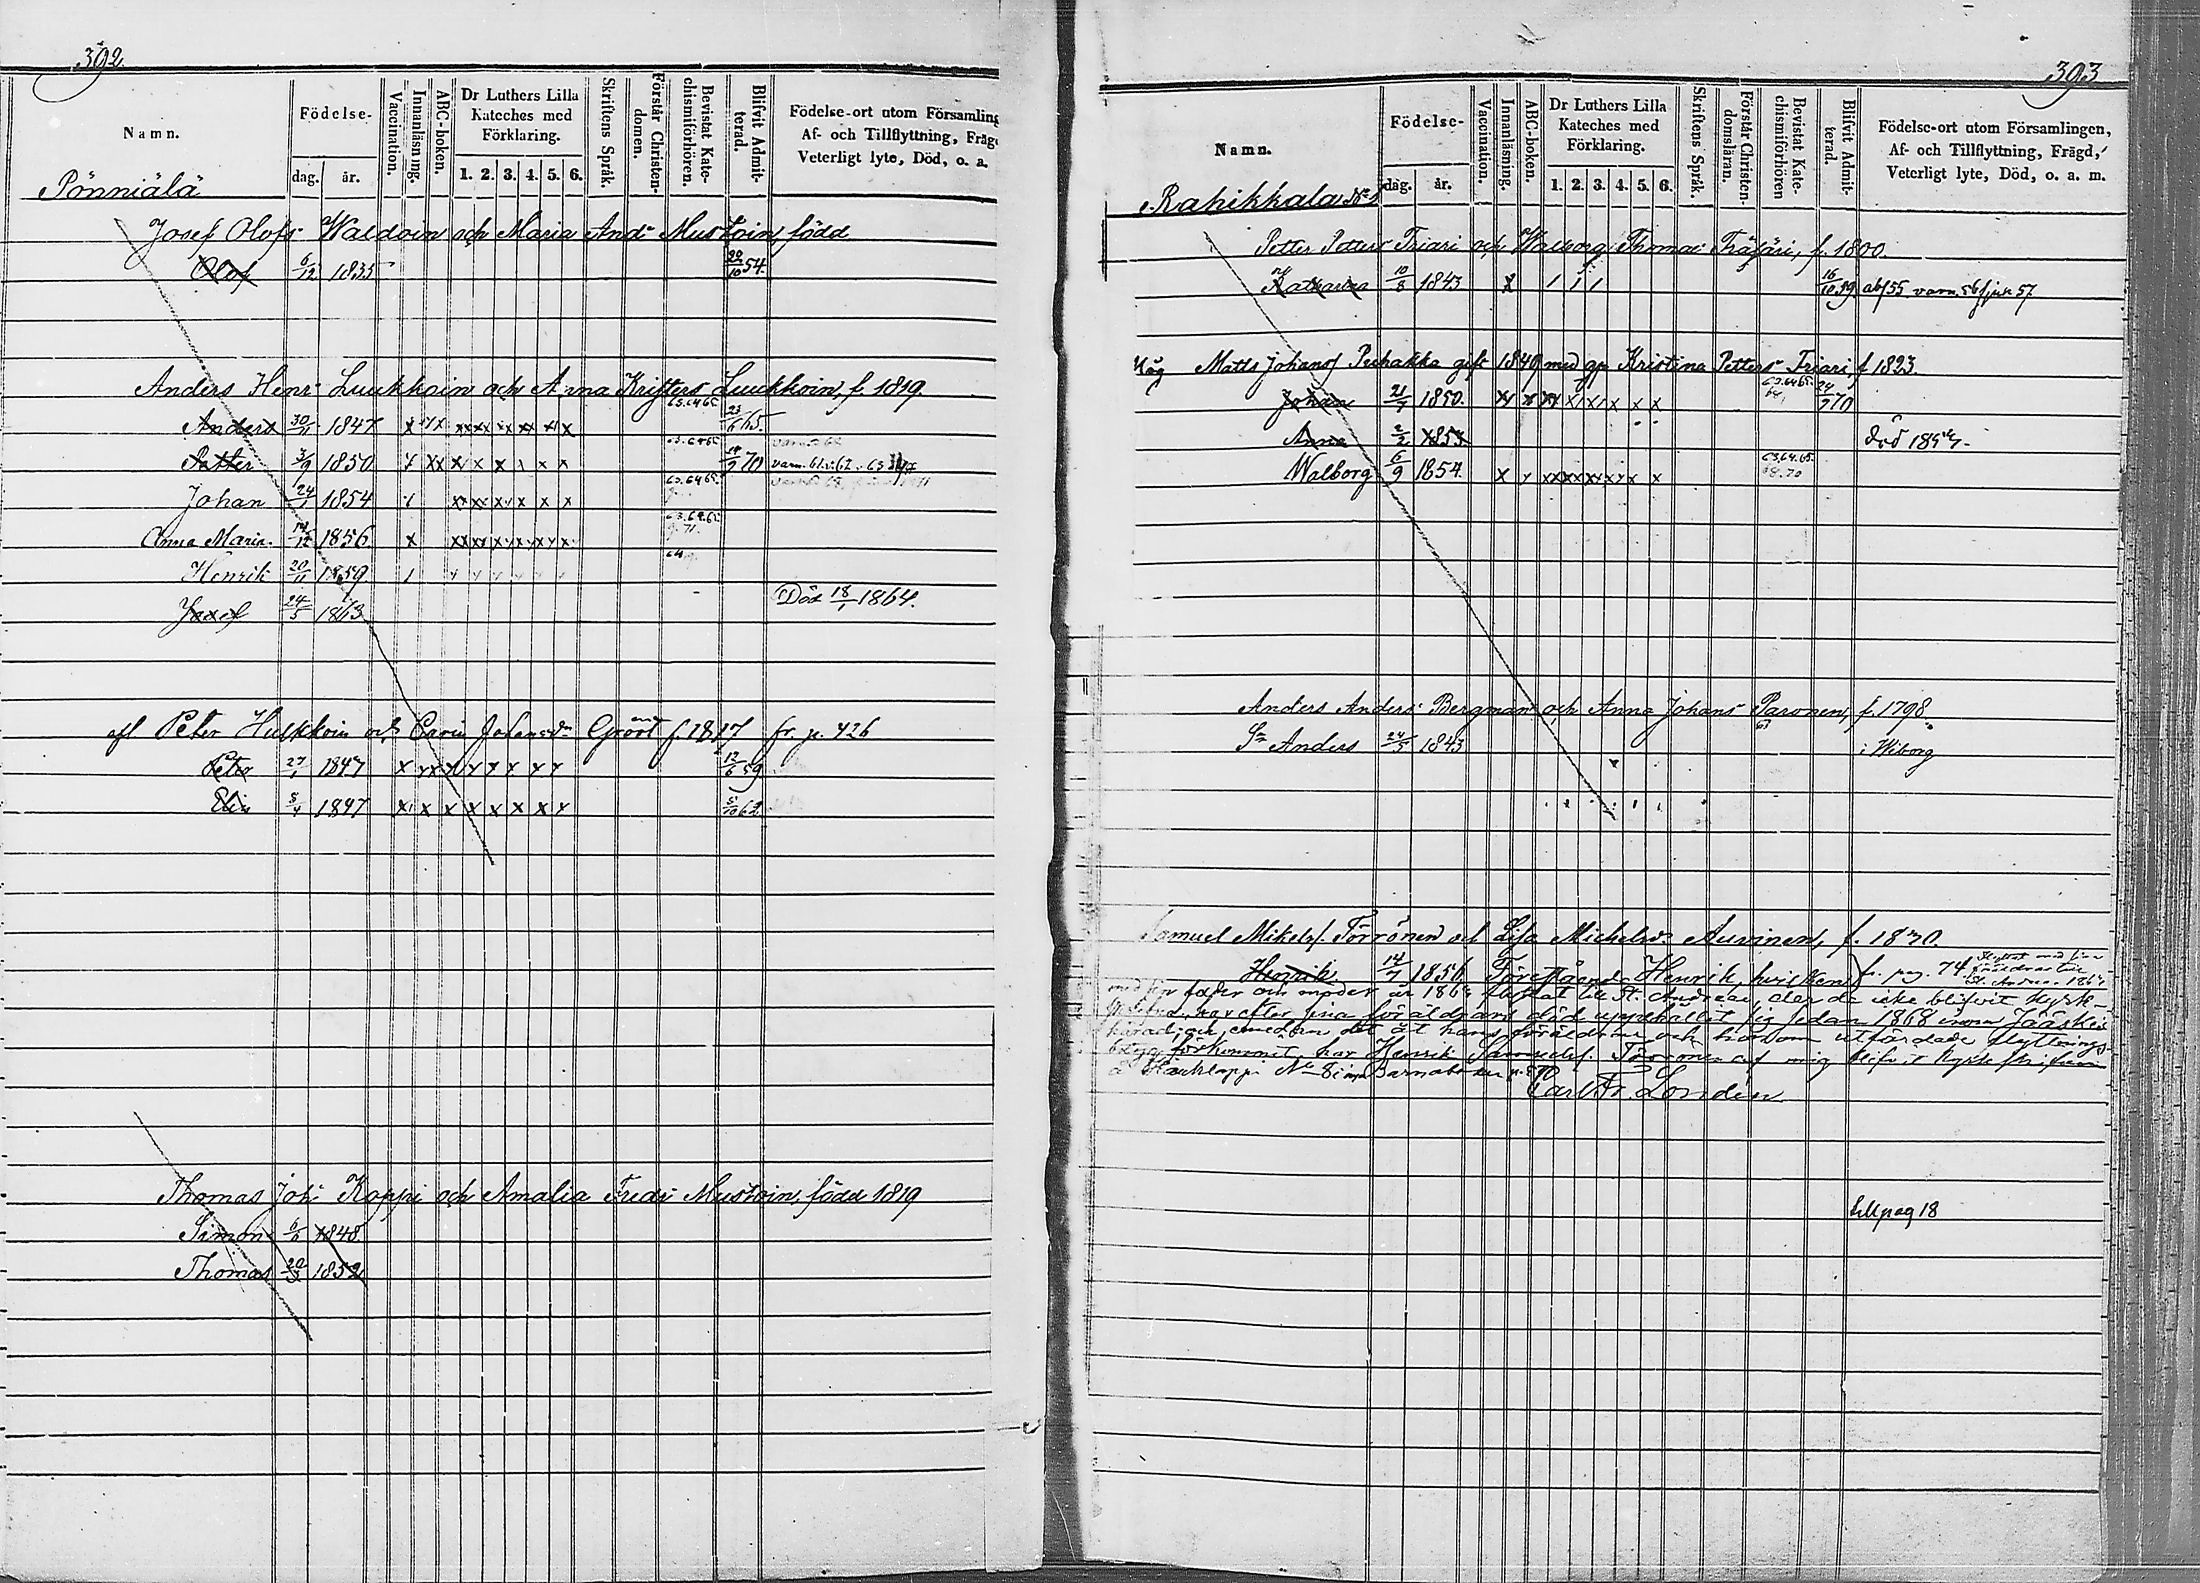 392
Namn.
Födelse-
dag. år.
Vaccination.
Innanläsning.
ABC-boken.
Dr Luthers Lilla
Kateches med
Förklaring.
1. 2. 3. 4. 5. 6.
Skriftens Språk.
Förstår Christen-
domen.
Bevistat Kate-
chismiförhören.
Blifvit Admit-
terad.
Födelse-ort utom Församling
Af- och Tillflyttning, Fräg
Veterligt lyte, Död, o. a.
Pönniälä
Josef Olofs Waldoin och Maria And: Mustoin, född
Olof 6/12 1835 20/10 54.
Anders Henr: Luukkoin och Anna Krifters Luukkoin, f. 1819.
Anders 30/11 1847 63.64 65 23/6 65.
Petter 3/9 1850 63.64 65 70 varn. 61. 62. 63
Johan 24/1 1854 63.64 65
Anna Maria. 1856. 63.64.65 71.
Henrik 20/11 1859 64
Josef 24/5 1863 Död 18/1 1864.
afl Peter Hulkkoin och Carin Johansdr Gröönt f. 1817 fr. p. 426
Peter 27/1 1847 12/6 59
Elin 5/4 1847 5/10 62
Thomas Joh: Koppi och Amalia Fredr Mustoin, född 1819
Simon 6/6 1848
Thomas 20/3 1852
393
Namn.
Födelse-
dag. år.
Vaccination.
Innanläsning.
ABC-boken.
Dr Luthers Lilla
Kateches med
Förklaring.
1. 2. 3. 4. 5. 6.
Skriftens Språk.
Förstår Christen-
domsläran.
Bevistat Kate-
chismiförhören
Blifvit Admit-
terad.
Födelse-ort utom Församlingen,
Af- och Tillflyttning, Frägd,
Veterligt lyte, Död, o. a. m.
Rahikkala No 1
Petter Petters Triari och Walborg Thomas: Träfäri, f. 1800.
Katharina 10/8 1843 16/10 59. abs 55 varn. 56 sjuk 57
Måg Matts Johans Puhakka gift 1849 med gp Kristina Petters Triari, f 1823.
Johan 21/7 1850. 63.64 65. 24/7 70
Anna 2/2 1853 död 1857.
Walborg 6/9 1854. 63.64.65. 68.70
Anders Anders: Bergman och Anna Johans Paronen, f. 1798.
Sn Anders 24/5 1843 63 i Wiborg
Samuel Mikelsf. Törrönen och Lisa Michelsdr Auvinen, f. 1830.
Henrik 14/7 1856 Föreståend Henrik, hvilken fr. pag. 74. Flyttat med sina föräldrar till St. Andreæ 186
med sin fader och moder år 186 flyttat till St. Andreae, der de icke blifvit kyrk-
efter sina föräldrars död uppehållit sig sedan 1868 inom Jääskis
och, emedan det åt hans föräldrar och honom utfärdade flyttnings-
betyg förkommit, har Henrik Samuelsf. Törrönen af mig blifvit kyrkskrifven
å Kaukloppi No 8 i nya Barnaboken p. 570
Carl Fr. Londen
till pag 18